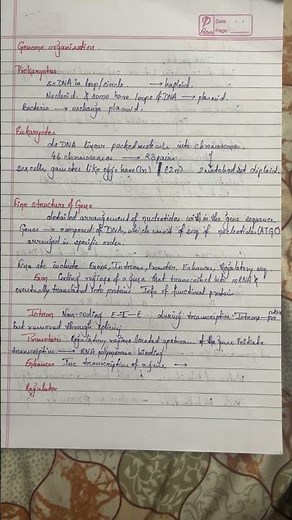 Date
Page
Genome organization
Prokaryotes
DNA in loop/circle → haploid.
Nucleoid & some have loops of DNA → plasmid.
Bacteria → exchange plasmid.
Eukaryotes
ds DNA linear packed molecule into chromosomes.
46 chromosomes → 23 pairs
Sex cells gametes like eggs have (1n) (2n) diploid.
Fine structure of Gene
detailed arrangement of nucleotides within the gene sequence.
Genes → composed of DNA, which consist of seq of nucleotides (ATGC)
arranged in specific order.
Fine str include Exons, Introns, Promoter, Enhancer, Regulatory seq
Exon Coding regions of a gene that transcribed into mRNA &
eventually translated into protein. Info of functional protein
Intron Non-coding E-I-E during transcription Introns
but removed through splicing
Promoter Regulatory regions located upstream of the gene initiate
transcription → RNA polymerase binding
Enhancer Inc transcription of a gene →
Regulator